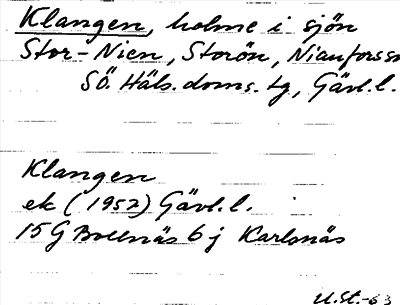 Klangen, holme i sjön
Stor-Nien, Storön, Nianforssn
Sö. Häls. doms. tg, Gävl.l.
Klangen
ek (1952) Gävl.l.
15G Bollnäs 6j Karlsnäs
U.St.-63